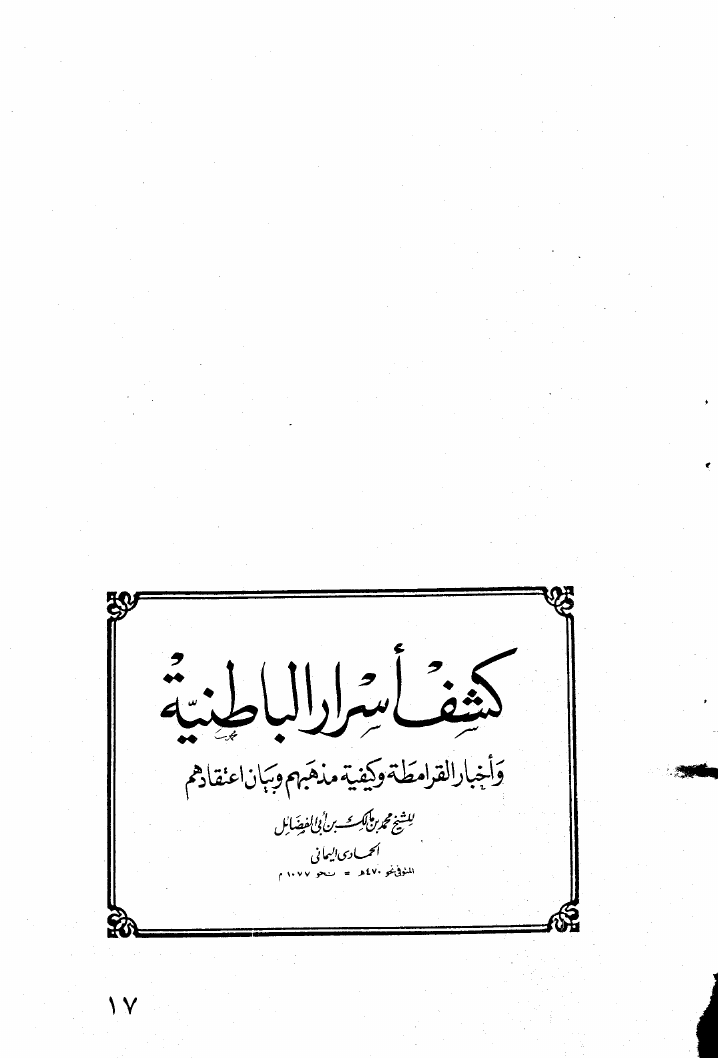 كشف أسرار الباطنية
وأخبار القرامطة وكيفية مذهبهم وبيان اعتقادهم
للشيخ محمد بن مالك بن أبي الفضائل
الحمادى اليمانى
المتوفى نحو ٤٧٠هـ = نحو ١٠٧٧ م
١٧